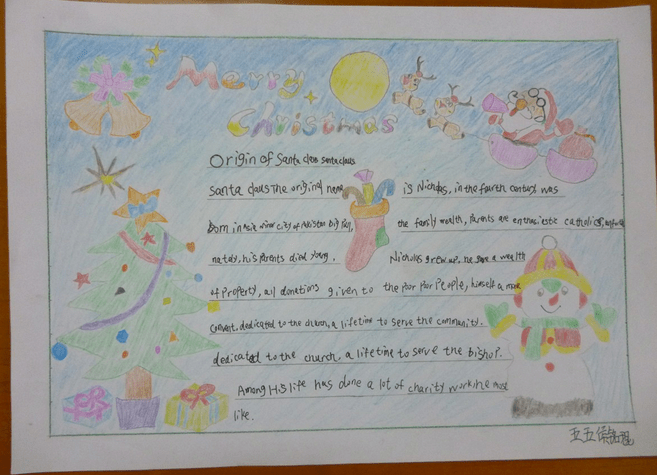 Merry
Christmas
Origin of Santa claus santa claus
santa claus the original name is Nicholas, in the fourth century was
Born in asia minor city of the family wealth, parents are enthusiastic catholics,
nately, his parents died young. Nicholas grew up, he gave a wealth
of property, all donations given to the poor poor People, himself a
convent, dedicated to the church, a lifetime to serve the community.
dedicated to the church, a lifetime to serve the bishop.
Among His life has done a lot of charity work, he most
like.
五五